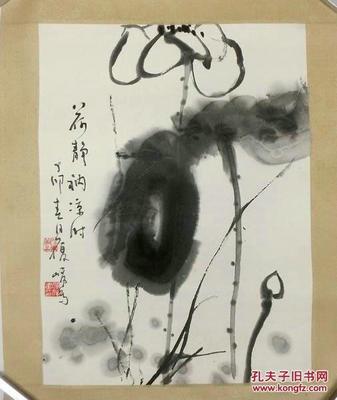 荷静衲凉时
丁卯春日夏峻写
孔夫子旧书网
www.kongfz.com